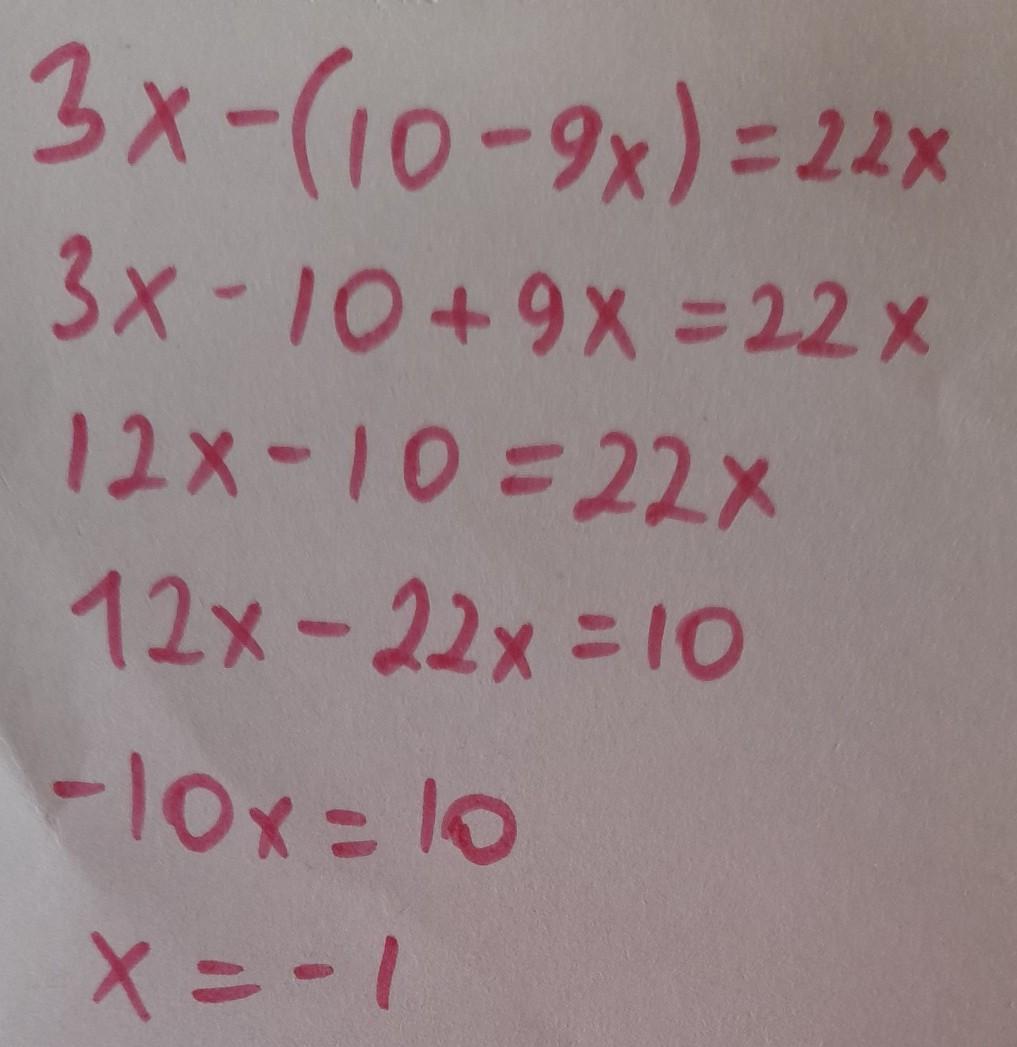 3x-(10-9x)=22x
3x-10+9x=22x
12x-10=22x
12x-22x=10
-10x=10
x=-1